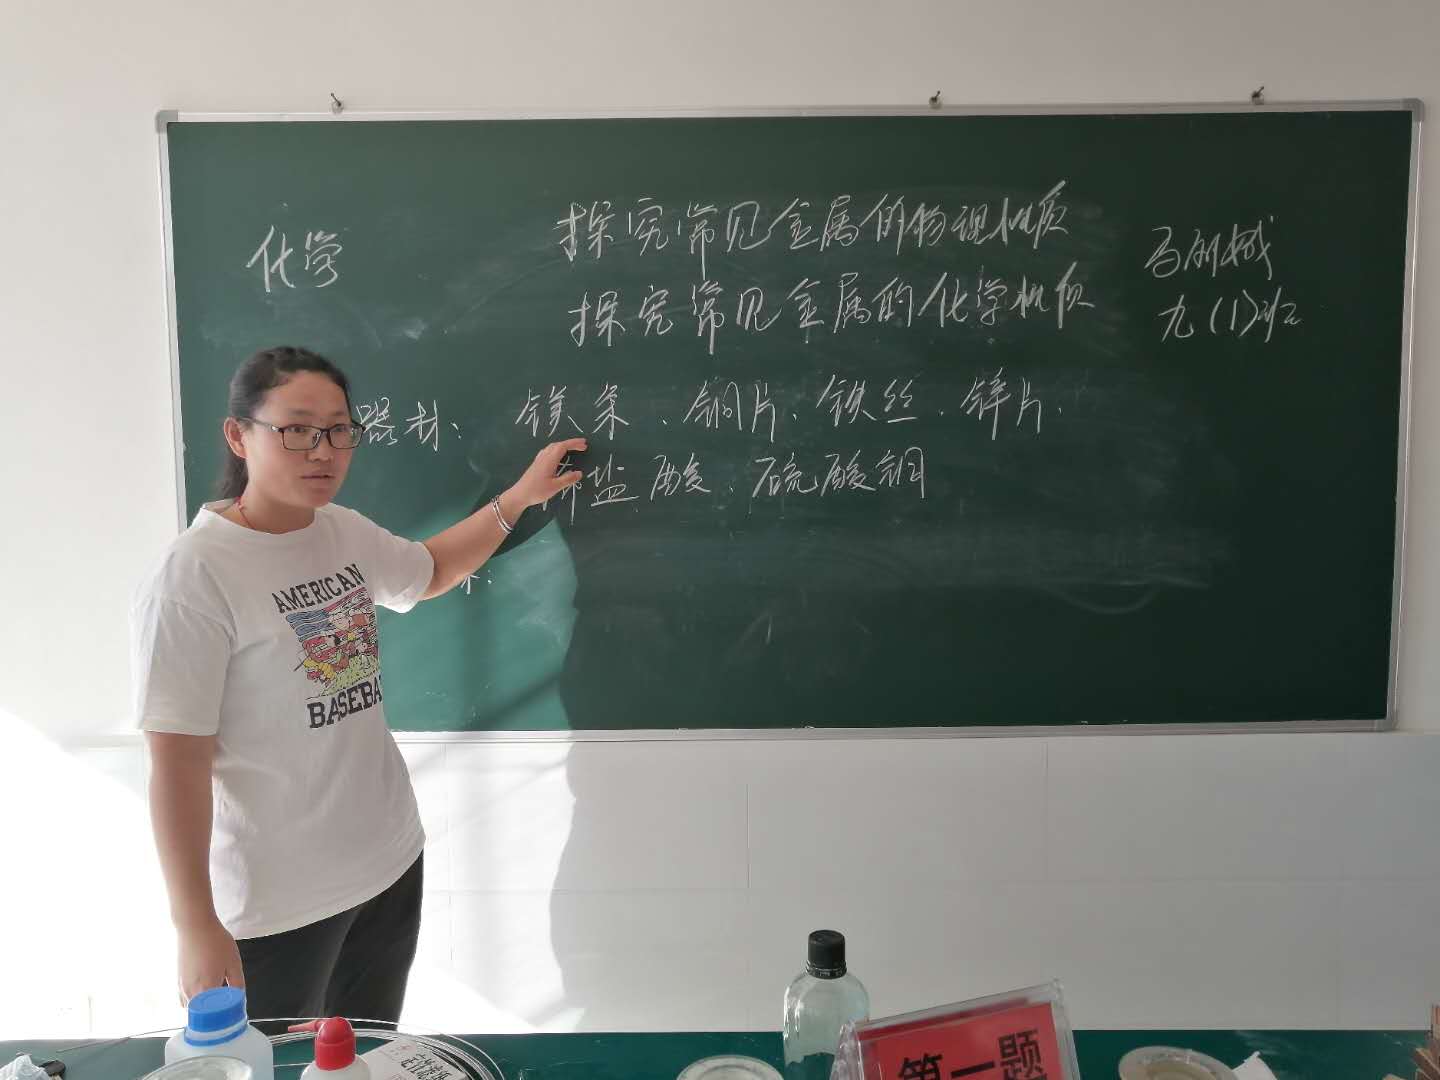 化学
探究常见金属的物理性质
探究常见金属的化学性质
九(1)班
器材： 镁条、铜片、铁丝、锌片、
稀盐酸、硫酸铜
AMERICAN
BASEBA
第一题